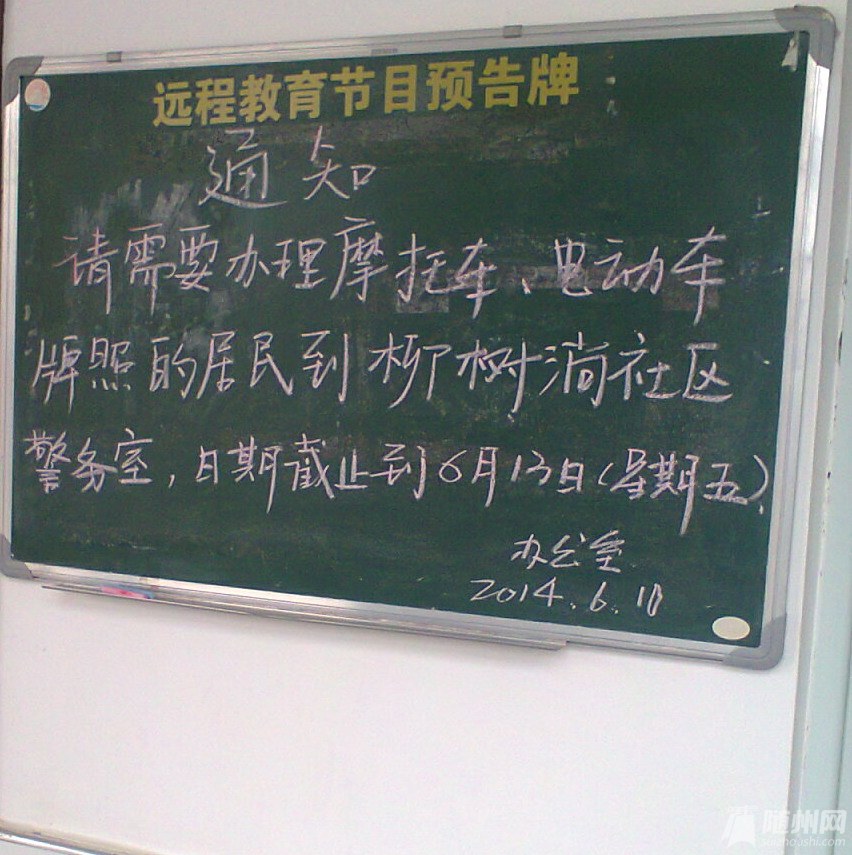 远程教育节目预告牌
通知
请需要办理摩托车、电动车
牌照的居民到柳树淌社区
警务室,日期截止到6月13日(星期五)
办公室
2014.6.10
随州网